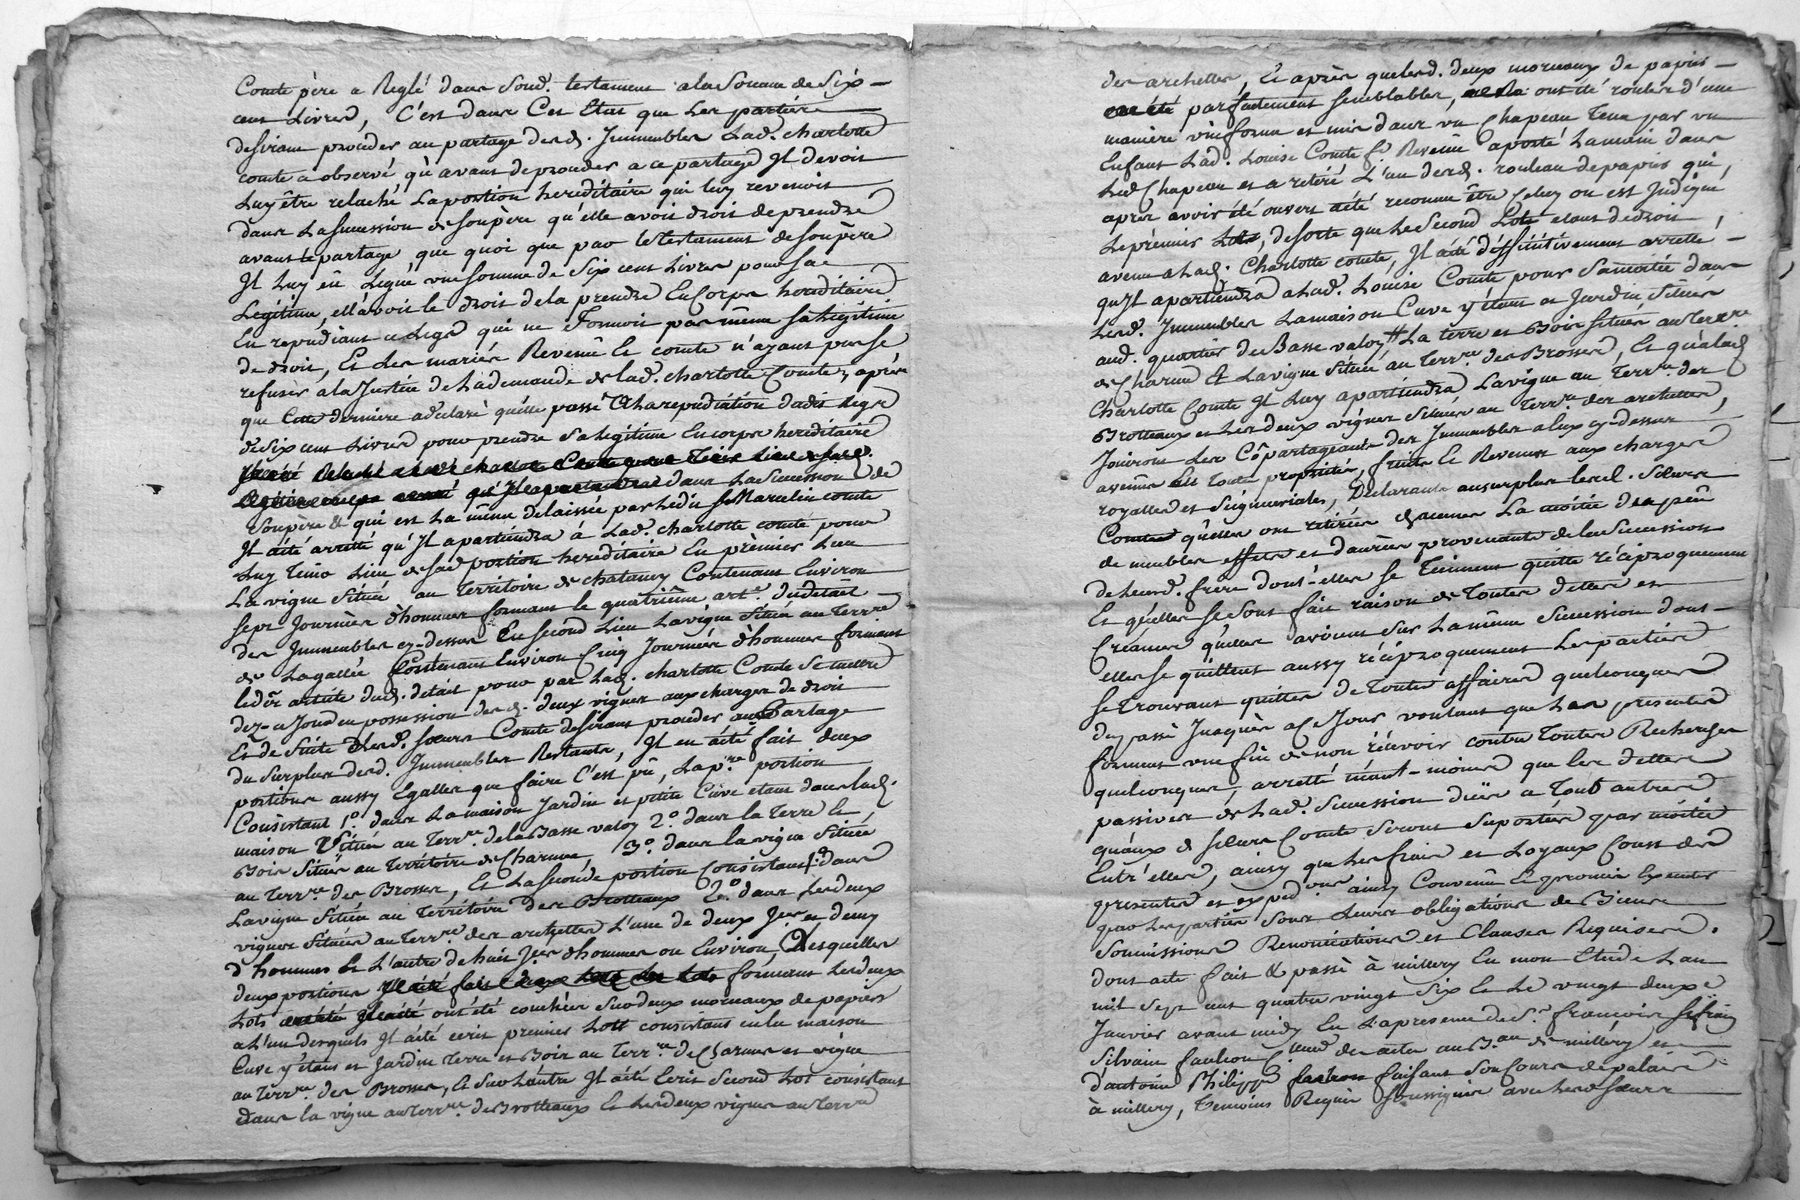 Comte père a Reglé dans Sond. testament ala Somme de Six
cens Livres, C'est dans Cet Etat que Les parties
desirant proceder au partage desd. Immeubles Lad. charlotte
comte a observé qu'avant de proceder a ce partage Il devoit
Luy être relaché La portion hereditaire qui luy revenoit
dans La Succession de Son père qu'elle avoit droit de prendre
avant le partage, que quoi que par le testament de Son père
Il Luy eü Legué une Somme de Six cens Livres pour Sa
Légitime, elle avoit le droit de la prendre En Corps hereditaire
En repudiant ce Legs qui ne Formoit pas même Sa Legitime
de droit, Et Les mariés Revenü Et comte n'ayant pu Se
refuser a la Justice de La demande de lad. charlotte Comte, après
que Cette derniere a declaré qu'elle passé a La repudiation dudit Legs
de Six cens Livres pour prendre Sa Legitime En corps hereditaire
dans La Succession de
Son père & qui est La même delaissée par Ledit Sr Marcelin comte
Il a été arretté qu'Il apartiendra à Lad. charlotte comte pour
Luy Tenir Lieu de Sad portion hereditaire En prèmier Lieu
La vigne Située au Territoire de chatanay Contenant Environ
Sept Journées d'hommes formant le quatrième art. du détail
des Immeubles cy-dessus En Second Lieu La vigne Située au Terre
de Lagallée Contenant Environ Cinq Journées d'hommes formant
le der article dud. détail pour par Lad. charlotte Comte Se mettre
dez-a Jourd en possession desd. deux vignes aux charges de droit
Et de Suite Lesd. Soeurs Comte desirant proceder au Partage
du Surplus desd. Immeubles Restants, Il en a été fait deux
portions aussy Egalles que faire C'est pü, La pre portion
Consistant 1° dans La maison Jardin et petite Cuve etant dans lad.
maison Située au Terrre de la Basse valoy 2° dans la Terre Et
Bois Situés au Territoire de Charme, 3° dans la vigne Située
au Terrre des Brosses, Et La Seconde portion Consistant 1° dans
La vigne Située au Territoire des Brotteaux 2° dans Les deux
vignes Situées au Terrre des archettes L'une de deux Jées & demy
d'hommes Et L'autre de huit Jées d'hommes ou Environ, Desquelles
deux portions formant Les deux
Lots ont été couchés Sur deux morceaux de papiers
a L'un desquels Il a été ecrit premier Lott consistant en la maison
Cuve y étant et Jardin Terre et Bois au Terrre de Charmes et vigne
au Terrre des Brosses, Et Sur L'autre Il a été Ecrit Second Lot consistant
dans la vigne au Terrre des Brotteaux Et Les deux vignes au Terre
des archettes, Et après que lesd. deux morceaux de papiers
parfaitement Semblables, ont été roulés d'une
manière uniforme et mis dans un Chapeau Tenu par un
Enfant Lad. Louise Comte fe Revenü a porté La main dans
Led Chapeau et a retiré L'un desd. rouleau de papier qui,
après avoir été ouvert a été reconnu être Celuy ou est Indiqué
Le prémier Lot, de Sorte que Le Second Lot etant de droit
avenu a Lad. Charlotte comte, Il a été déffinitivement arretté
qu'Il apartiendra a Lad. Louise Comte pour Sa moitié dans
Lesd. Immeubles La maison Cuve y étant et Jardin Situés
aud. quartier de Basse valoy # La terre et Bois Situés au Terrre
de Charme Et La vigne Située au Terrre des Brosses, Et qu'a Lad
Charlotte Comte Il Luy apartiendra La vigne au Terrre des
Brotteaux et Les deux vignes Situées au Terrre des archettes,
Jouiront Les Copartageants des Immeubles a Eux cy-dessus
avenus En Toute proprieté, fruits Et Revenus aux charges
royalles et Seigneuriales, Déclarant au surplus Lesd. Soeurs
Comte qu'elles ont retirées chacune La moitié du peu
de meubles effets et danrées provenants de la Succession
de Leurd. frère dont-elles Se Tiennent quitte réciproquement
Et qu'elles Se Sont fait raison de Toutes dettes et
Créances qu'elles avoient Sur La même Succession dont
elles Se quittent aussy réciproquement Les parties
Se trouvant quittes de Toutes affaires quelconques
du passé Jusques a Ce Jour voulant que Les presentes
forment une fin de non recevoir contre Toutes Recherches
quelconques, arretté néant-moins que les dettes
passives de Lad. Succession düe a Tout autres
qu'aux d Soeurs Comte Seront Suportées par moitié
Entr'elles, ainsy que Les frais et Loyaux Cousts des
presentes et expedons ainsy Convenu Et promis Executer
par Les parties Sous Leurs obligations de Biens
Soumissions Renonciations et Clauses Requises.
dont acte fait & passé à millery En mon Etude Lan
mil Sept cent quatre vingt Six Et Le vingt deuxe
Janvier avant midy En La presence de Sr françois
Silvain faulion des actes au Bau de millery et
d'antoine Philippe faisant Son Cours de palais
à millery, Temoins Requis Soussignés avec Lesd Soeurs